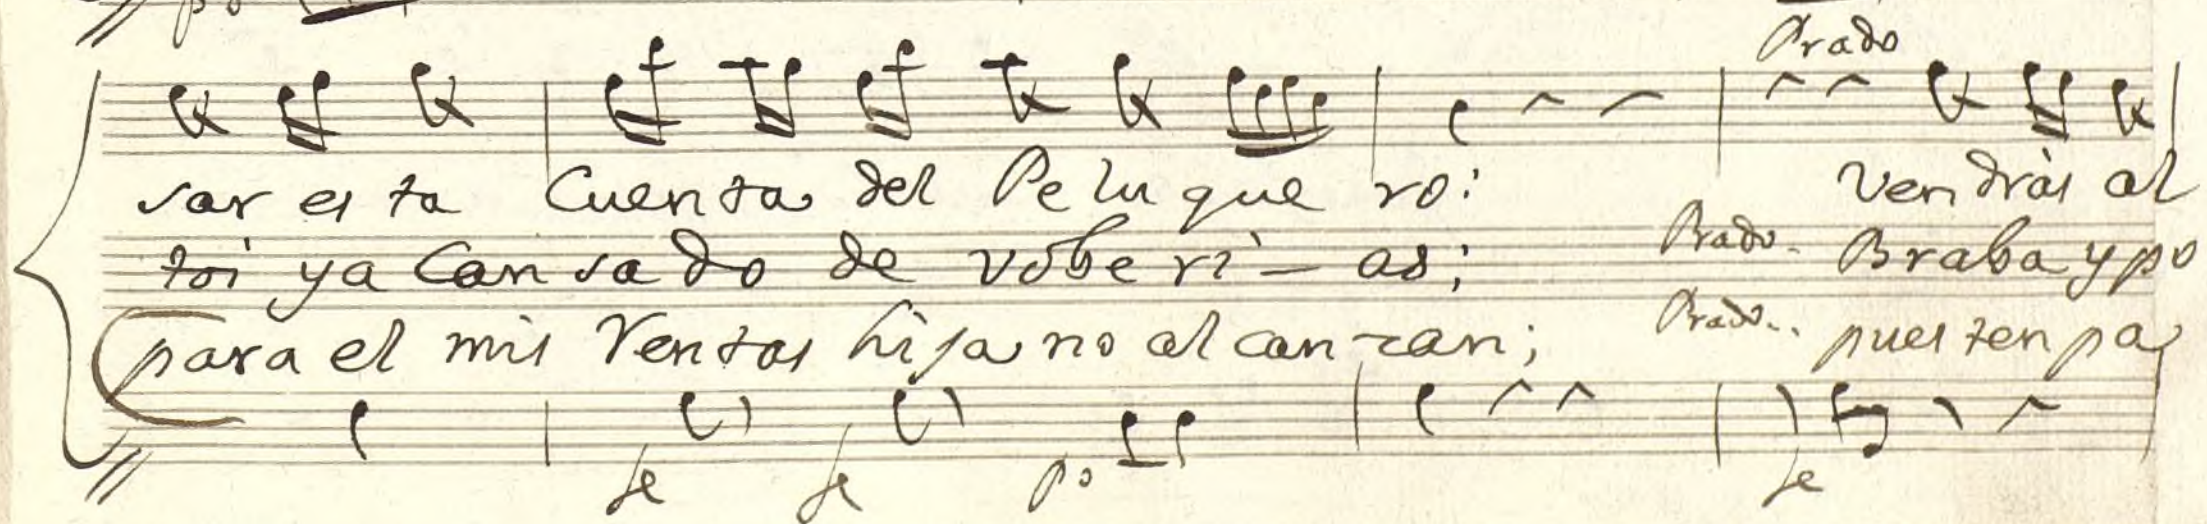 po
Prado
sar es ta Cuenta del Pe lu que ro: Vendràs al
toi ya Can sa do de vobe rì - as; Prado. Braba y po
para el mis Ventas hija no al can zan; Prado.. pues ten pa
fe fe po fe